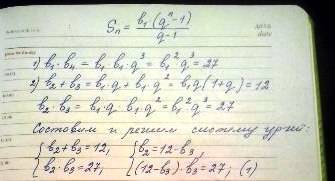 Sₙ = b₁(qⁿ-1) / q-1
date
1) b₁·b₄ = b₁ b₁·q³ = b₁²q³ = 27
2) b₂+b₃ = b₁·q + b₁·q² = b₁q(1+q) = 12
b₂·b₃ = b₁·q·b₁·q² = b₁²q³ = 27
Составим и решим систему ур-ний:
{b₂+b₃=12, {b₂=12-b₃,
{b₂·b₃=27, {(12-b₃)·b₃=27, (1)